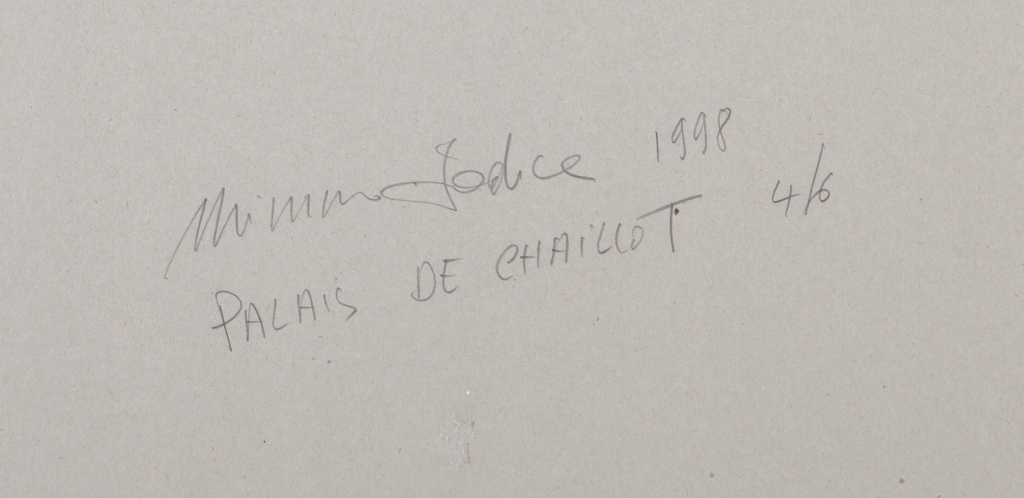 Mimmo Jodice 1998
PALAIS DE CHAILLOT 4/6